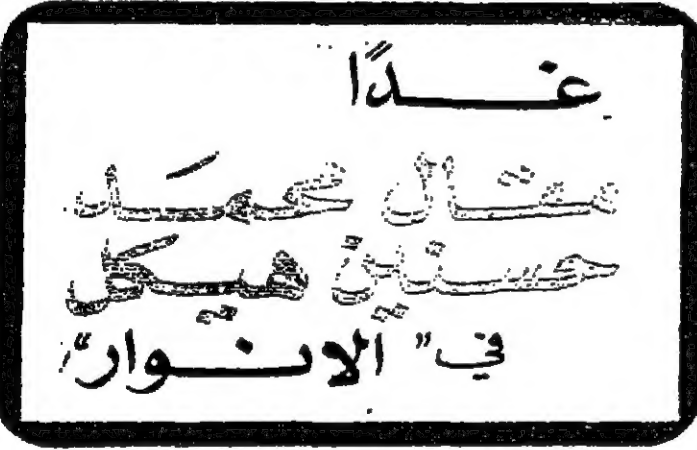 غدًا
مقال محمد
حسنين هيكل
في "الانوار"